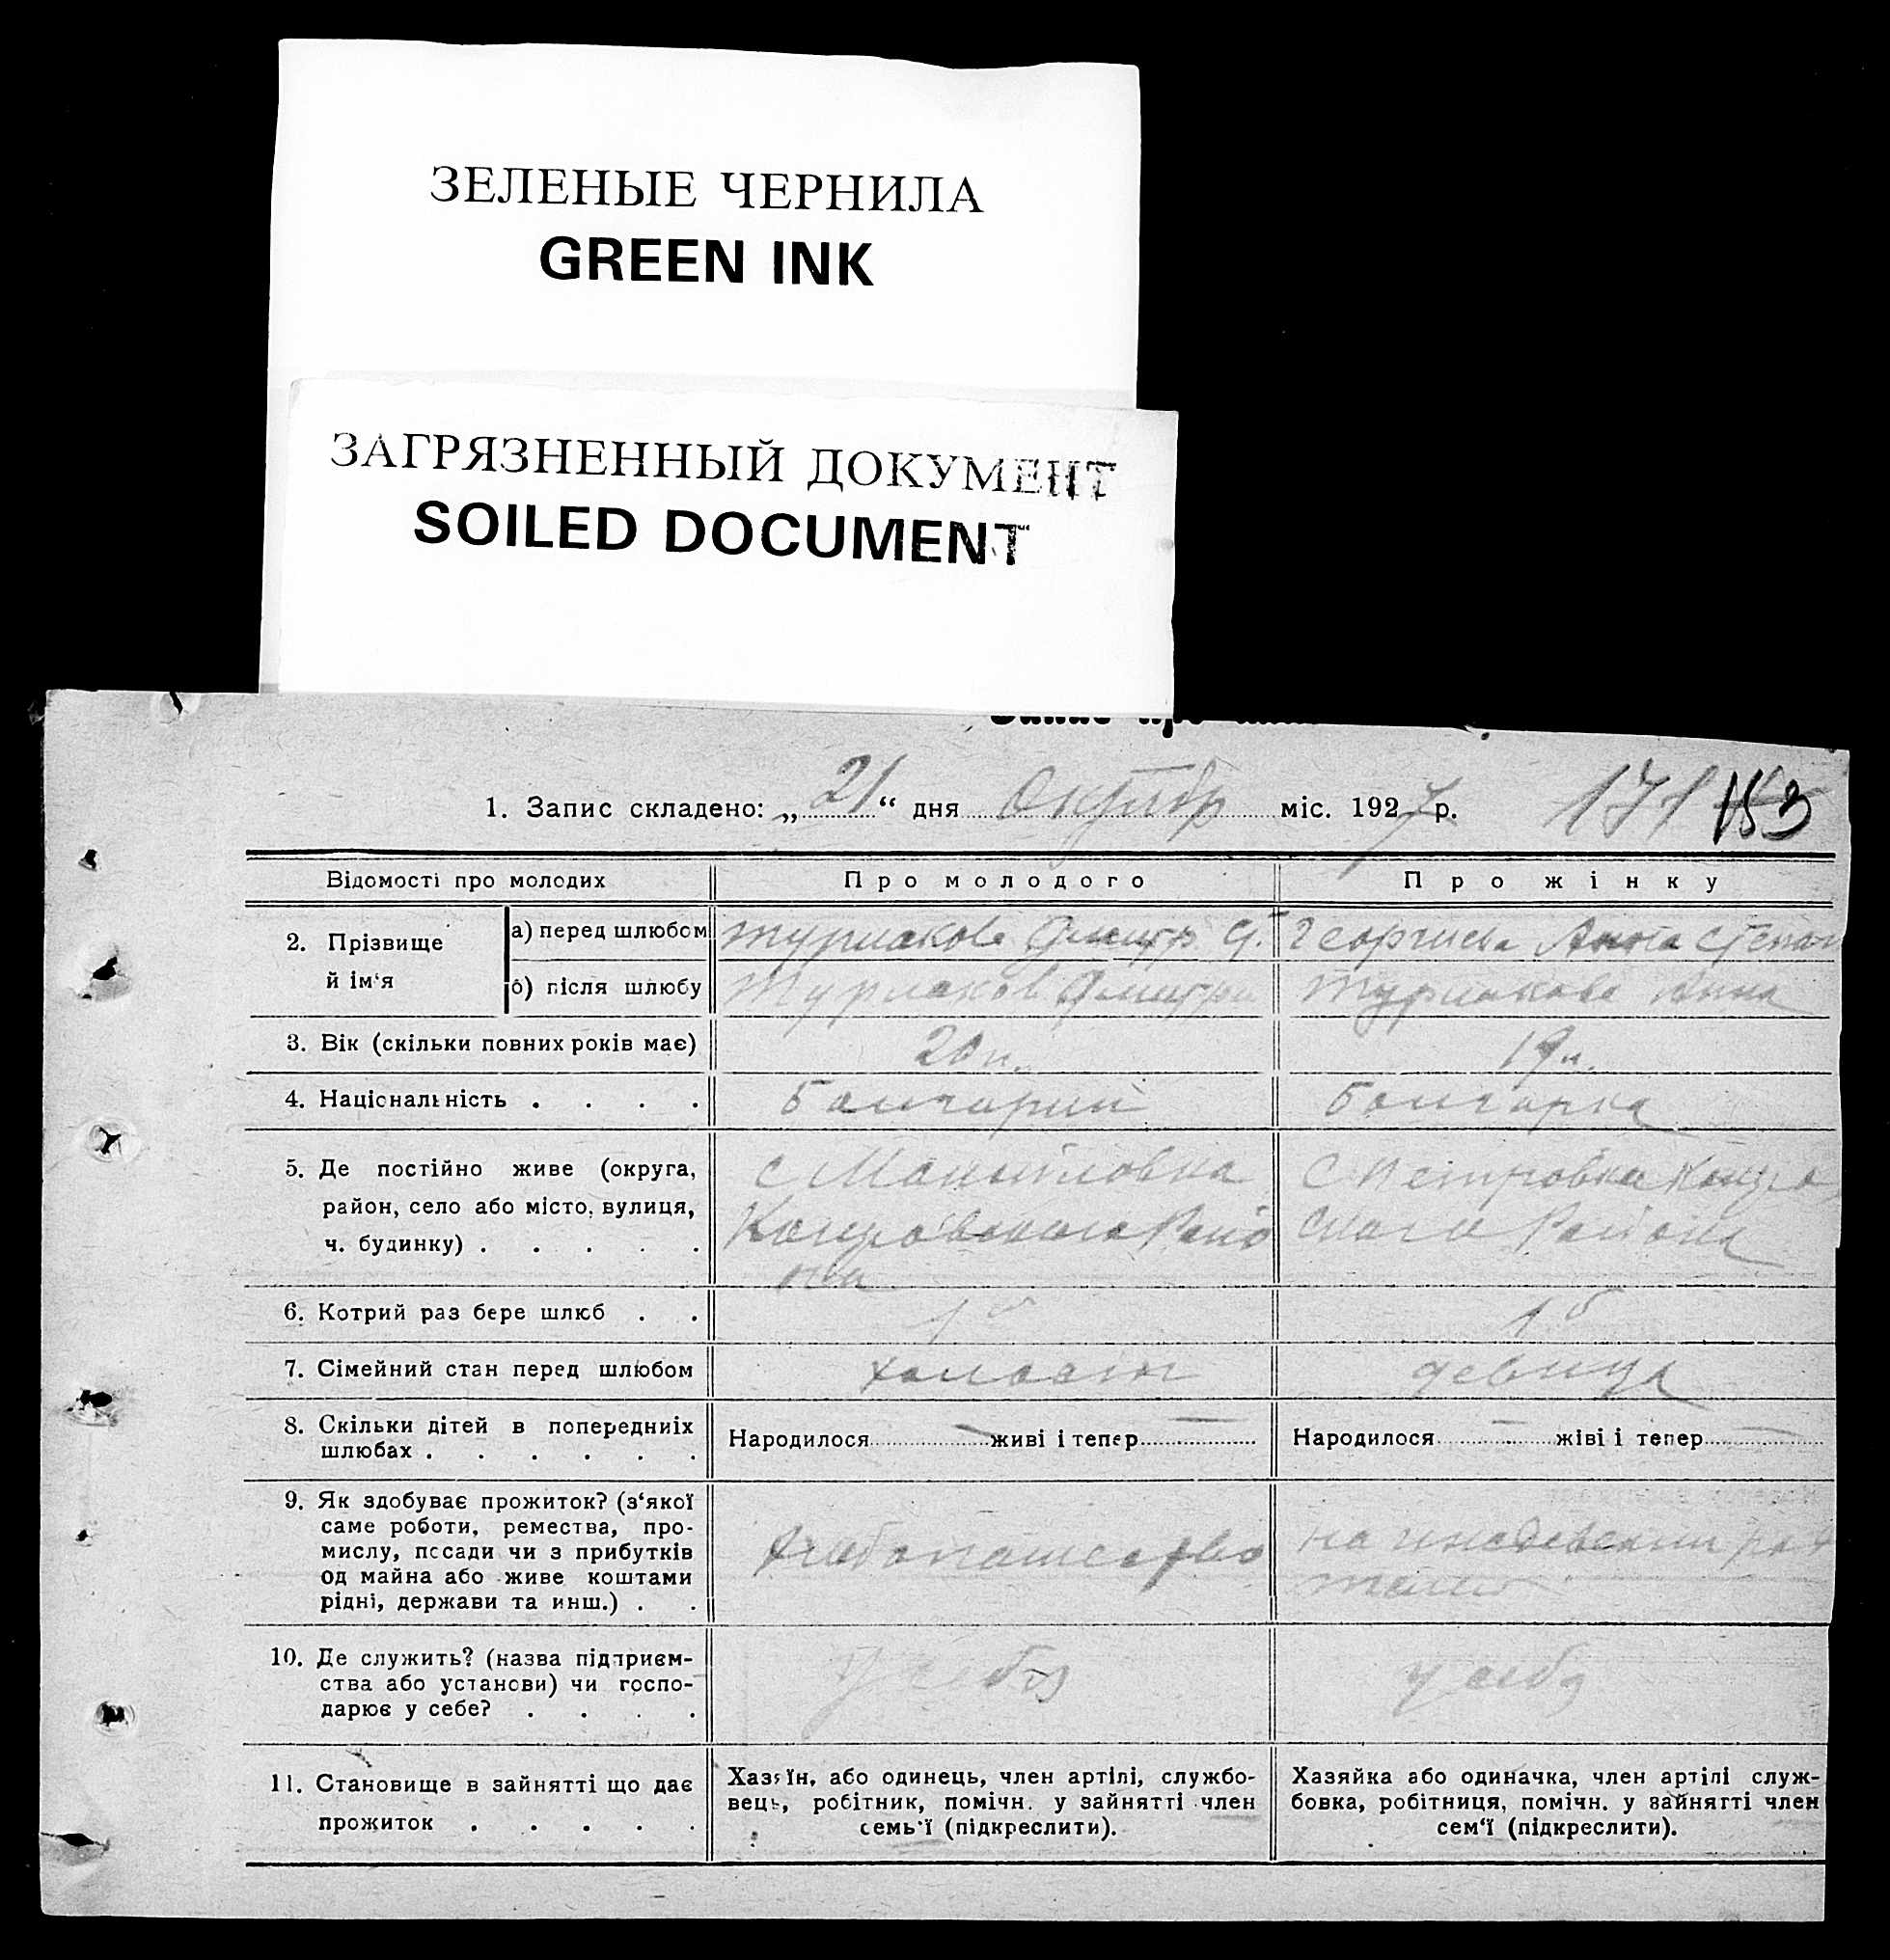 ЗЕЛЕНЫЕ ЧЕРНИЛА
GREEN INK
ЗАГРЯЗНЕННЫЙ ДОКУМЕНТ
SOILED DOCUMENT
1. Запис складено: „21“ дня Октябр міс. 1927 р. 171 153
Відомості про молодих Про молодого Про жінку
2. Прізвище й ім‘я
а) перед шлюбом Дмитр Георгиева Анна Степан
б) після шлюбу Дмитри Анна
3. Вік (скільки повних років має) 20 л. 19 л.
4. Національність . . . . Болгарин Болгарка
5. Де постійно живе (округа, с Мануиловка с Петровка
район, село або місто, вулиця, Района
ч. будинку) . . . . .
6. Котрий раз бере шлюб . . 1й 1й
7. Сімейний стан перед шлюбом холост девица
8. Скільки дітей в попередниіх Народилося — живі і тепер — Народилося — жіві і тепер —
шлюбах . . . . . .
9. Як здобуває прожиток? (з‘якої
саме роботи, ремества, про- хлебопашество на иждевении
мислу, посади чи з прибутків
од майна або живе коштами
рідні, держави та инш.) . .
10. Де служить? (назва підприєм- у себя у себя
ства або установи) чи госпо-
дарює у себе? . . . .
11. Становище в зайнятті що дає
прожиток . . . . .
Хазяїн, або одинець, член артілі, службо-
вець, робітник, помічн. у зайнятті член
семь‘ї (підкреслити).
Хазяйка або одиначка, член артілі служ-
бовка, робітниця, помічн. у зайнятті член
сем‘ї (підкреслити).